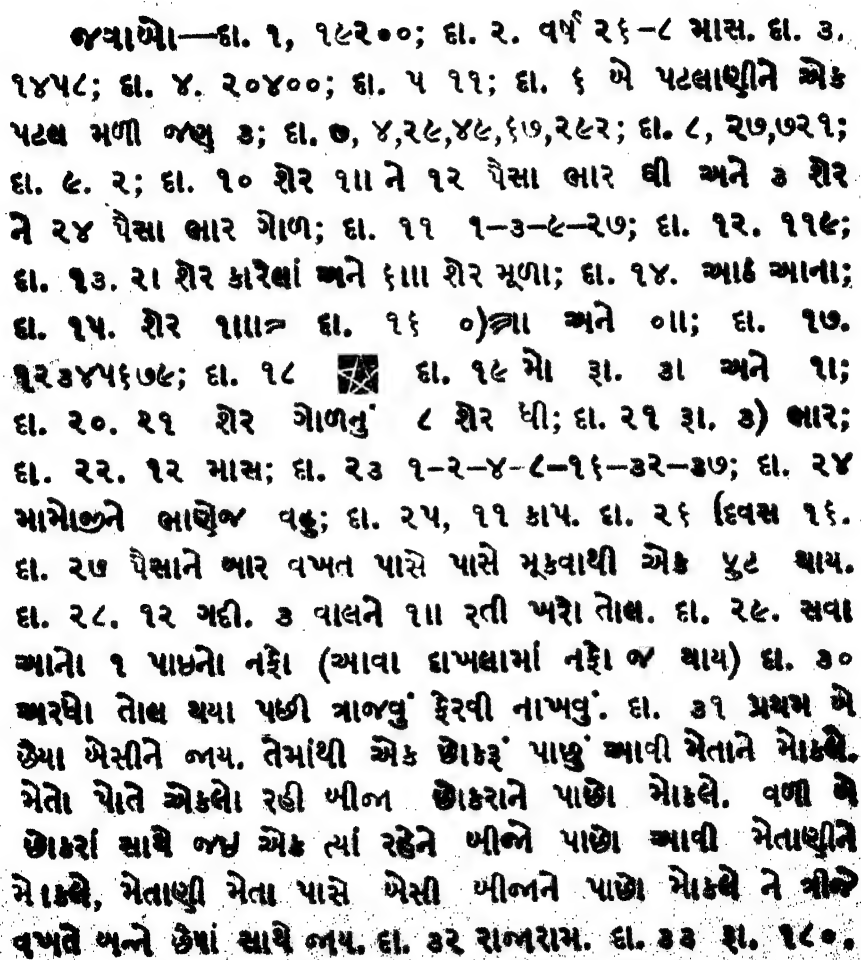 જવાબો—દા. ૧, ૧૯૨૦૦; દા. ૨. વર્ષ ૨૬-૮ માસ. દા. ૩.
૧૪૫૮; દા. ૪. ૨૦૪૦૦; દા. ૫ ૧૧; દા. ૬ બે પટલાણીને એક
પટલ મળી જણ ૩; દા. ૭, ૪,૨૯,૪૯,૬૭,૨૯૨; દા. ૮, ૨૭,૭૨૧;
દા. ૯. ૨; દા. ૧૦ શેર ૧ાા ને ૧૨ પૈસા ભાર ઘી અને ૩ શેર
ને ૨૪ પૈસા ભાર ગોળ; દા. ૧૧ ૧-૩-૯-૨૭; દા. ૧૨. ૧૧૯;
દા. ૧૩. ૨ા શેર કારેલાં અને ૬ાાા શેર મૂળા; દા. ૧૪. આઠ આના;
દા. ૧૫. શેર ૧ાાા દા. ૧૬ અને ૦ાા; દા. ૧૭.
૧૨૩૪૫૬૭૯; દા. ૧૮ દા. ૧૯ મો રૂા. ૩ા અને ૧ા;
દા. ૨૦. ૨૧ શેર ગોળનું ૮ શેર ઘી; દા. ૨૧ રૂા. ૩) ભાર;
દા. ૨૨. ૧૨ માસ; દા. ૨૩ ૧-૨-૪-૮-૧૬-૩૨-૩૭; દા. ૨૪
મામોજીને ભાણેજ વહુ; દા. ૨૫, ૧૧ કાપ. દા. ૨૬ દિવસ ૧૬.
દા. ૨૭ પૈસાને બાર વખત પાસે પાસે મૂકવાથી એક ફુટ થાય.
દા. ૨૮. ૧૨ ગદી. ૩ વાલને ૧ાા રતી ખરો તોલ. દા. ૨૯. સવા
આનો ૧ પાઇનો નફો (આવા દાખલામાં નફો જ થાય) દા. ૩૦
અરધો તોલ થયા પછી ત્રાજવું ફેરવી નાખવું. દા. ૩૧ પ્રથમ બે
છૈયા બેસીને જાય. તેમાંથી એક છોકરૂં પાછું આવી મેતાને મોકલે.
મેતો પોતે એકલો રહી બીજા છોકરાને પાછો મોકલે. વળી બે
છોકરાં સાથે જઇ એક ત્યાં રહેને બીજો પાછો આવી મેતાણીને
મોકલે, મેતાણી મેતા પાસે બેસી બીજાને પાછો મોકલે ને ત્રીજે
વખતે બન્ને છૈયાં સાથે જાય. દા. ૩૨ રાજારામ. દા. ૩૩ રૂા. ૧૮૦.